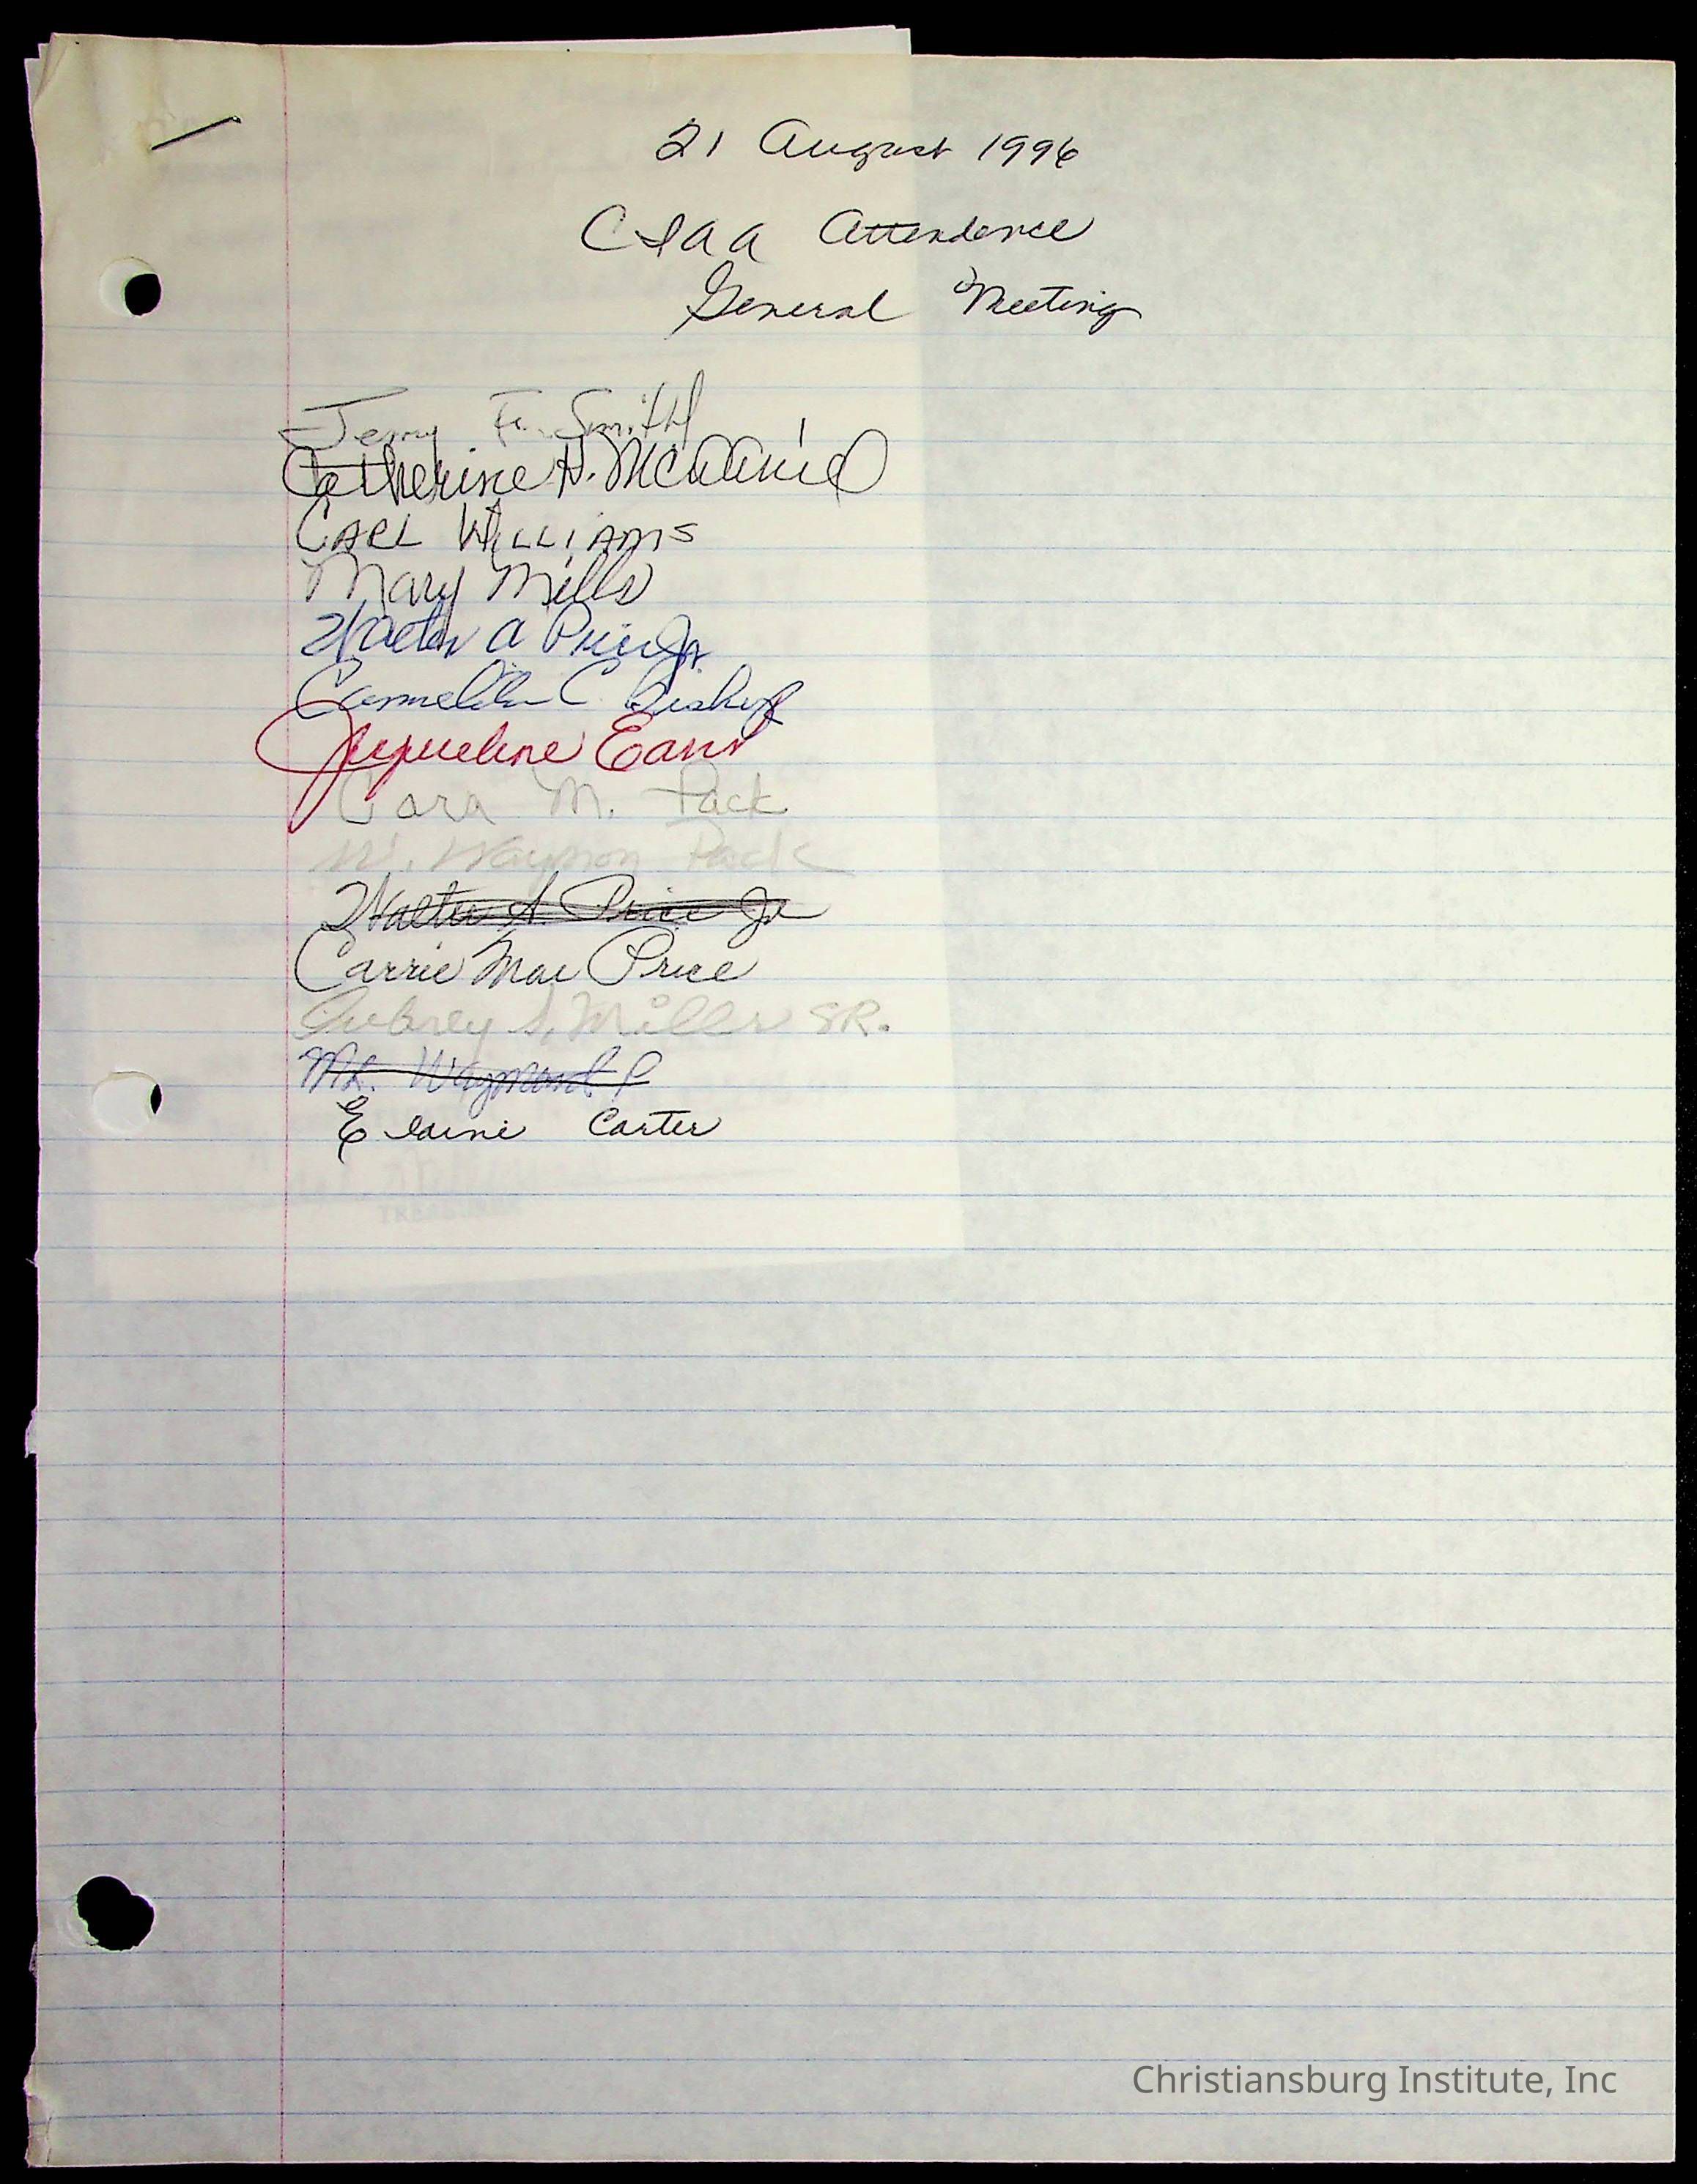 21 August 1996
CIAA Attendance
General Meeting
Jerry F. Smith
Catherine H. McDaniel
EARL WILLIAMS
Mary Mills
Walter A Price Jr.
Carmelita C. Bishop
Jacqueline Eaves
Cora M. Pack
W. Waymon Pack
Walter A. Price Jr
Carrie Mae Price
Aubrey S. Mills SR.
Mr. Waymond P
Elaine Carter
TREASURER
Christiansburg Institute, Inc